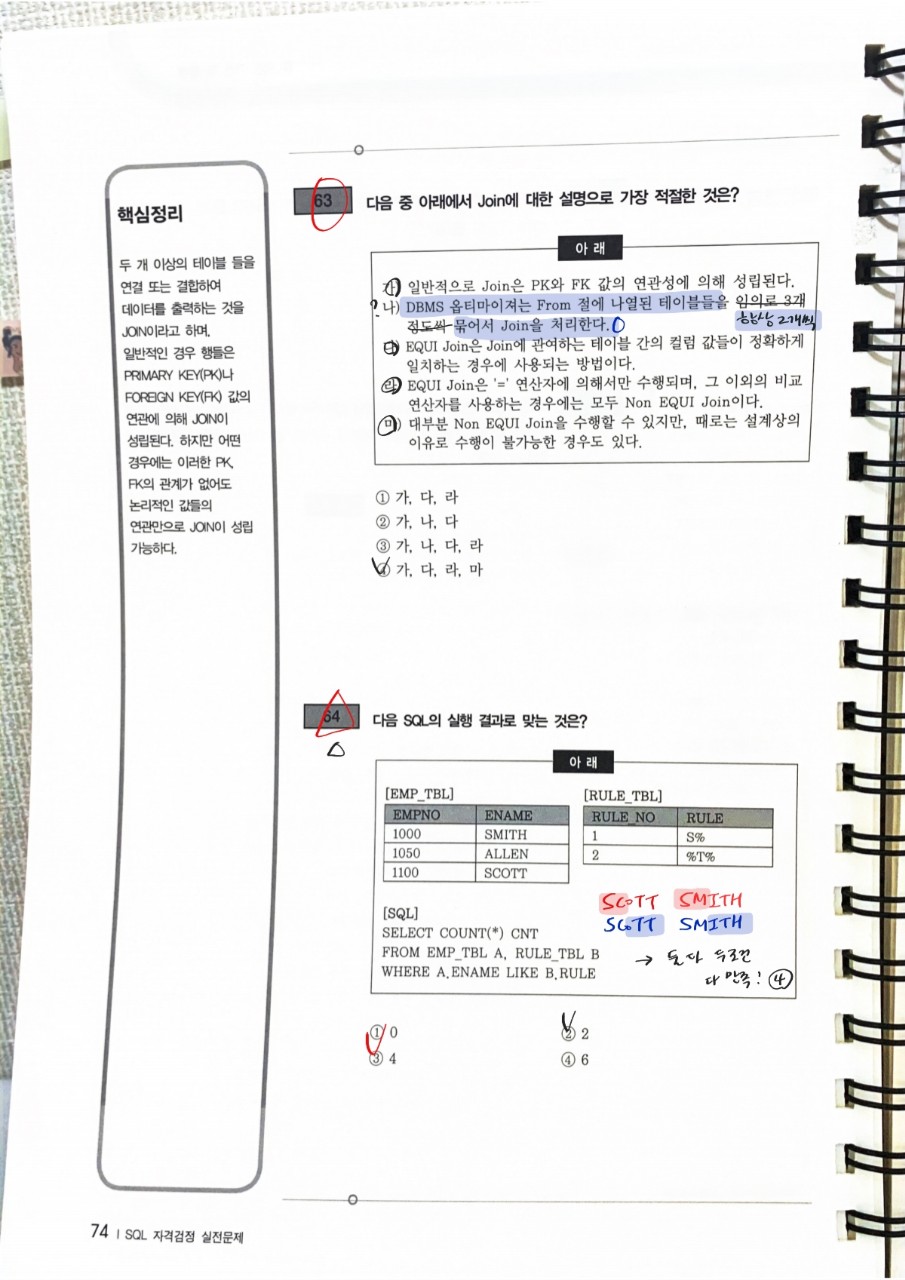 핵심정리
두 개 이상의 테이블 들을
연결 또는 결합하여
데이터를 출력하는 것을
JOIN이라고 하며,
일반적인 경우 행들은
PRIMARY KEY(PK)나
FOREIGN KEY(FK) 값의
연관에 의해 JOIN이
성립된다. 하지만 어떤
경우에는 이러한 PK,
FK의 관계가 없어도
논리적인 값들의
연관만으로 JOIN이 성립
가능하다.
63 다음 중 아래에서 Join에 대한 설명으로 가장 적절한 것은?
아 래
가) 일반적으로 Join은 PK와 FK 값의 연관성에 의해 성립된다.
? 나) DBMS 옵티마이져는 From 절에 나열된 테이블들을 임의로 3개
정도씩 묶어서 Join을 처리한다. 항상 2개씩
다) EQUI Join은 Join에 관여하는 테이블 간의 컬럼 값들이 정확하게
일치하는 경우에 사용되는 방법이다.
라) EQUI Join은 '=' 연산자에 의해서만 수행되며, 그 이외의 비교
연산자를 사용하는 경우에는 모두 Non EQUI Join이다.
마) 대부분 Non EQUI Join을 수행할 수 있지만, 때로는 설계상의
이유로 수행이 불가능한 경우도 있다.
① 가, 다, 라
② 가, 나, 다
③ 가, 나, 다, 라
④ 가, 다, 라, 마
64 다음 SQL의 실행 결과로 맞는 것은?
아 래
[EMP_TBL] [RULE_TBL]
EMPNO ENAME RULE_NO RULE
1000 SMITH 1 S%
1050 ALLEN 2 %T%
1100 SCOTT
SCOTT SMITH
[SQL] SCOTT SMITH
SELECT COUNT(*) CNT
FROM EMP_TBL A, RULE_TBL B → 둘다 두조건
WHERE A.ENAME LIKE B.RULE 다 만족! ④
① 0 ② 2
③ 4 ④ 6
74 | SQL 자격검정 실전문제